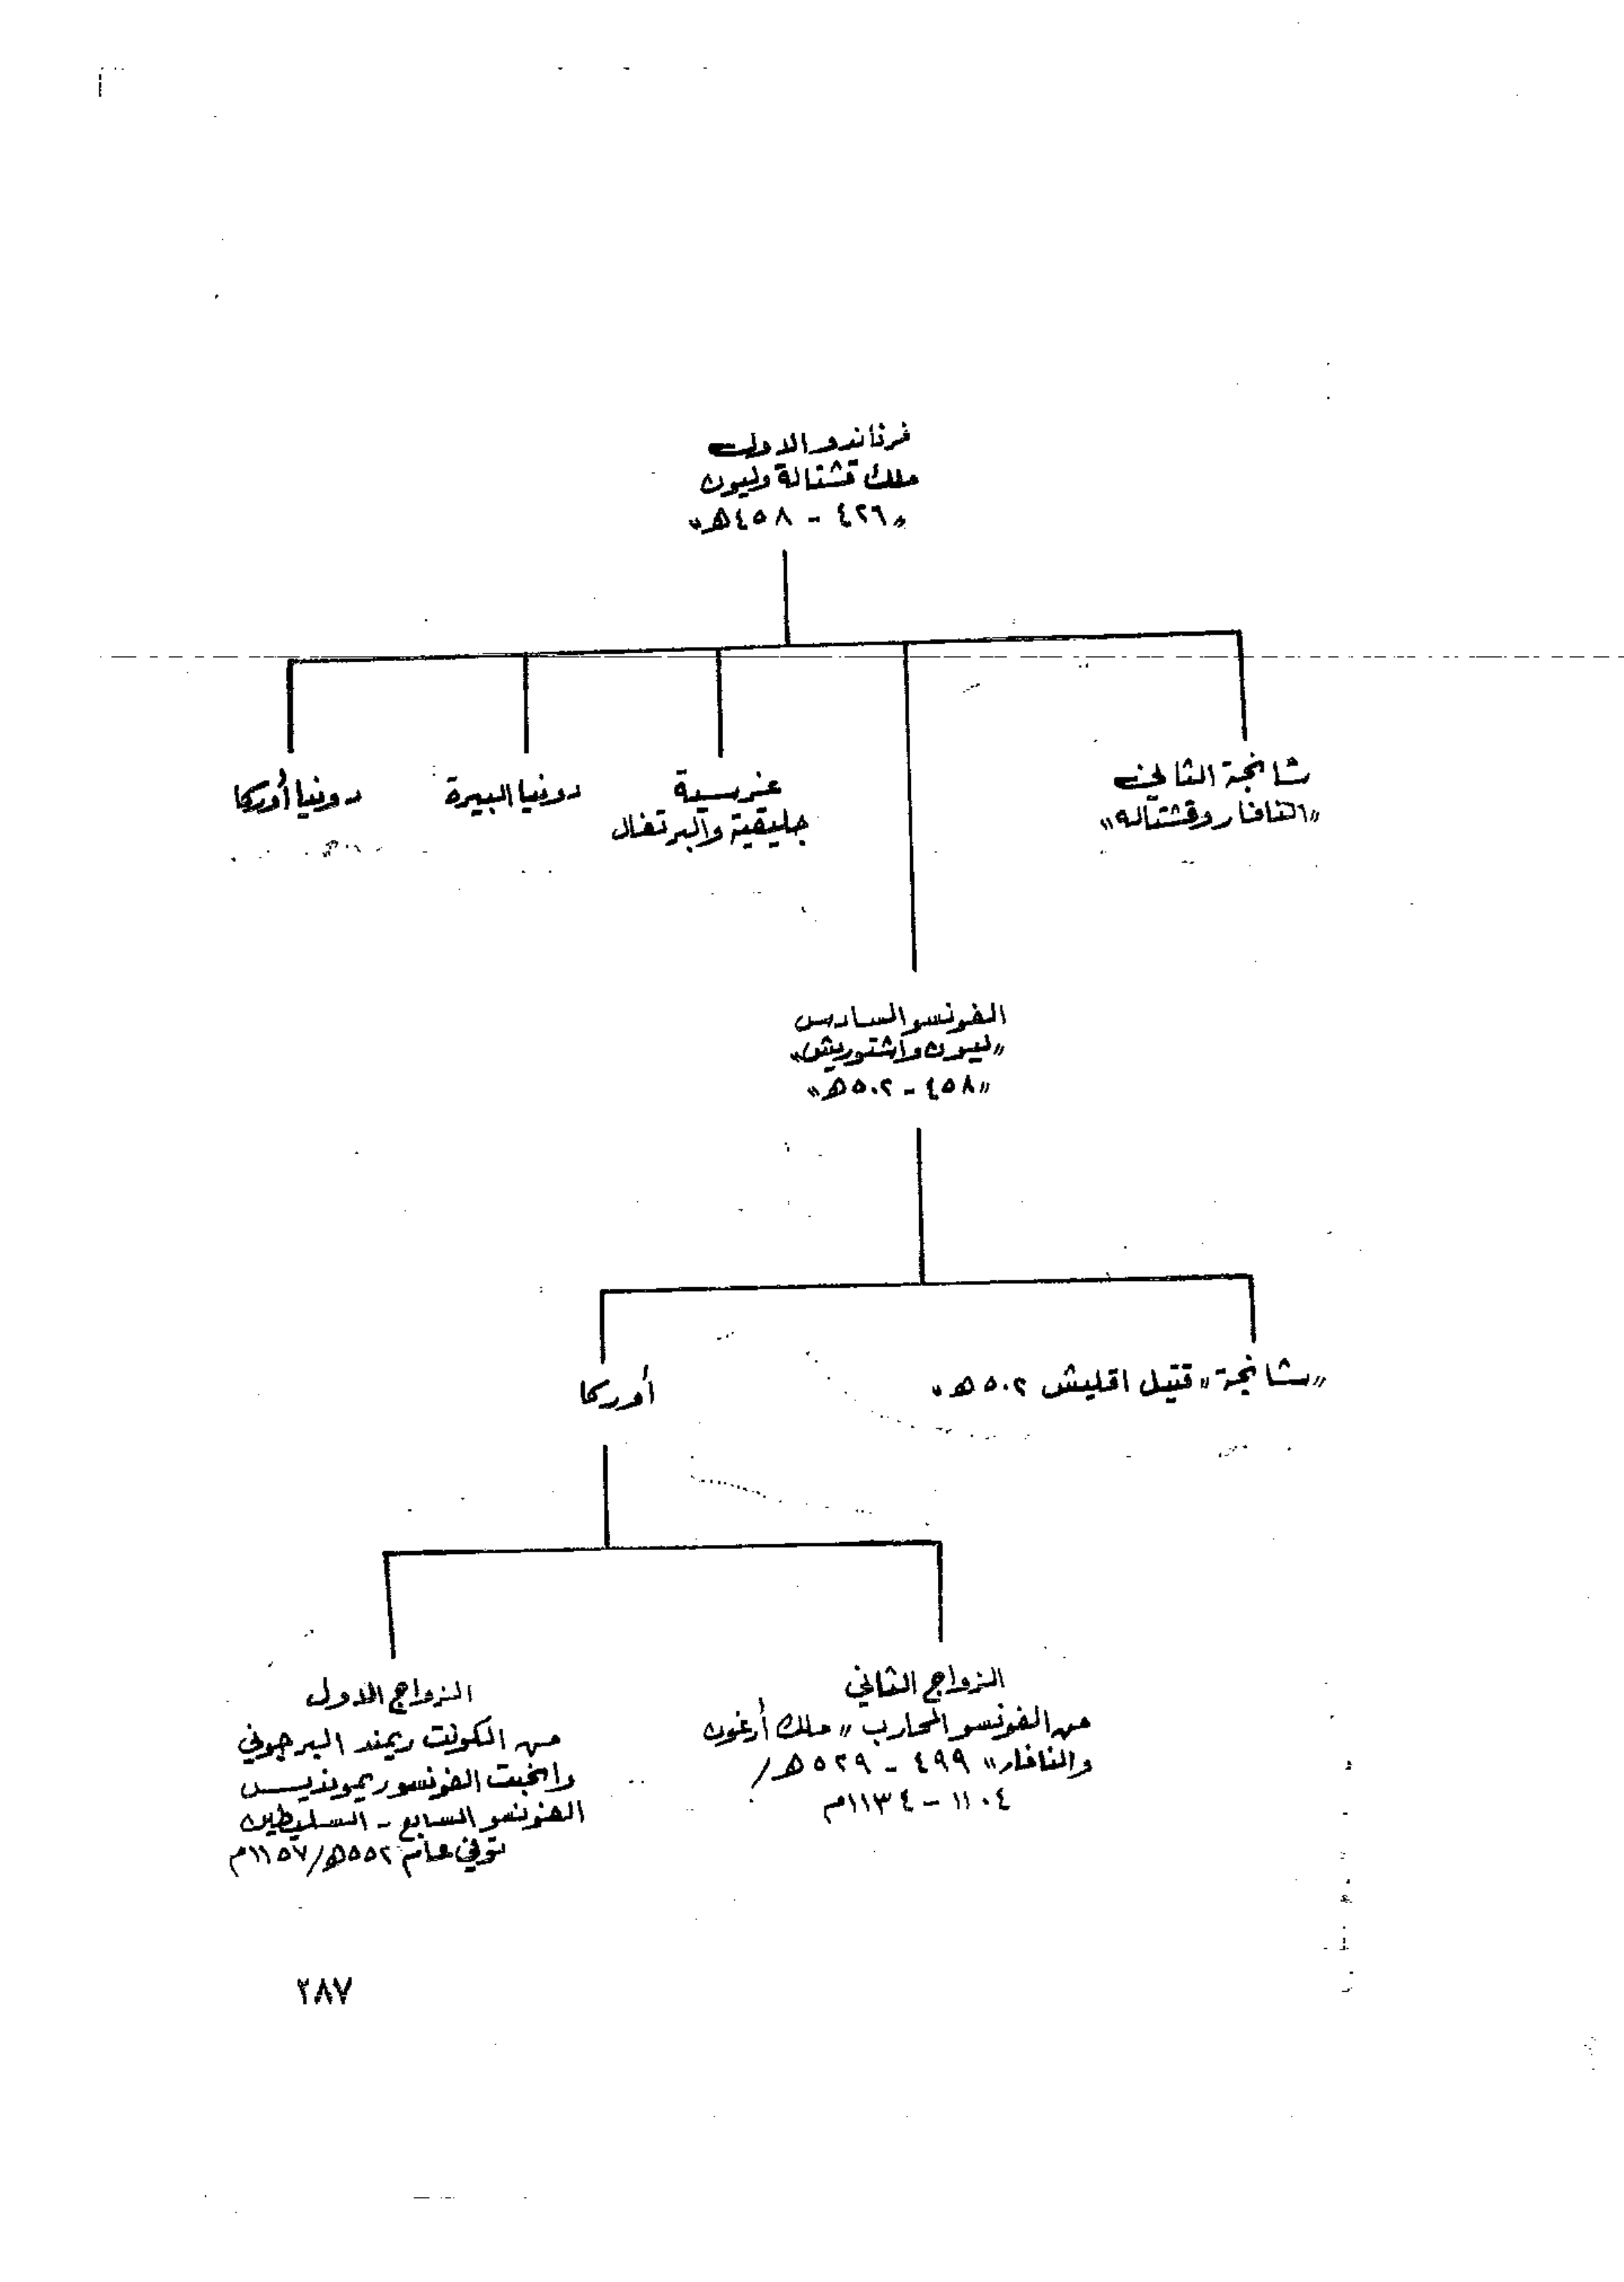 فرناندو الاول
ملك قشتالة وليون
«٤٢٦ - ٤٥٨هـ»
شانجة الثاني
«النافار وقشتاله»
غرسية
جليقية والبرتغال
دونيا البيرة
دونيا أوركا
الفونسو السادس
«ليون واشتوريش»
«٤٥٨ - ٥٠٢هـ»
«شانجة» قتيل اقليش ٥٠٢هـ»
أوركا
الزواج الثاني
من الفونسو المحارب «ملك أرغون
والنافار» ٤٩٩ - ٥٢٩هـ/
١١٠٤ - ١١٣٤م
الزواج الاول
من الكونت ريمند البرجوني
وانجبت الفونسو ريمونديس
الفونسو السابع - السليطين
توفي عام ٥٥٢هـ/١١٥٧م
٢٨٧